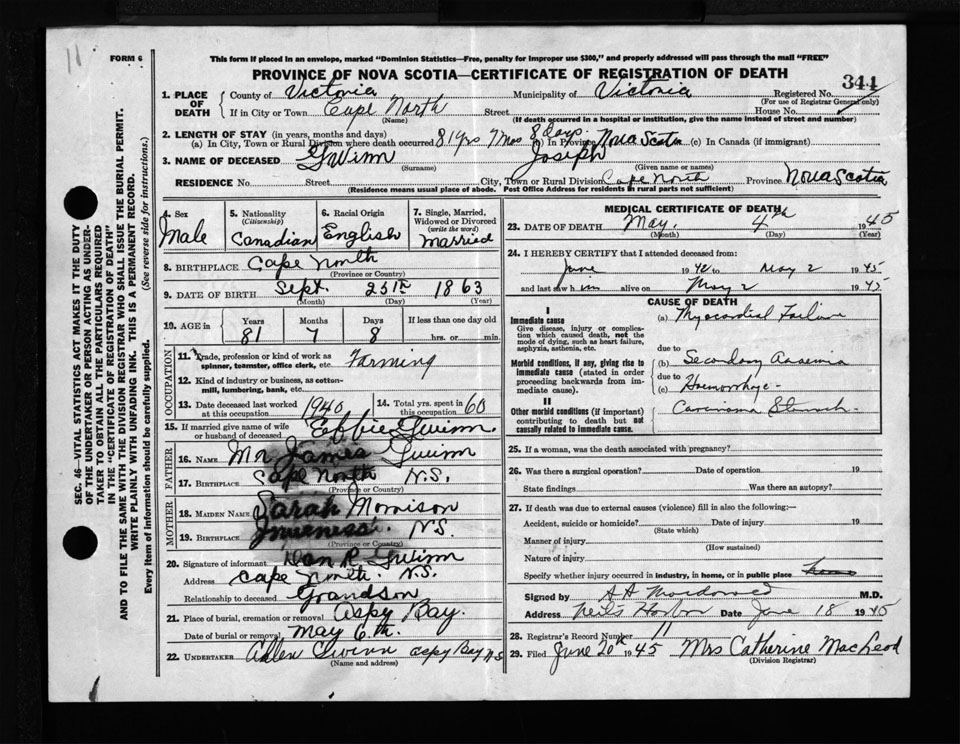 11
FORM 6
This form if placed in an envelope, marked "Dominion Statistics—Free, penalty for improper use $300," and properly addressed will pass through the mail "FREE"
PROVINCE OF NOVA SCOTIA—CERTIFICATE OF REGISTRATION OF DEATH
344
1. PLACE OF DEATH
County of Victoria Municipality of Victoria Registered No.
(For use of Registrar General only)
If in City or Town Cape North Street House No.
(Name) (If death occurred in a hospital or institution, give the name instead of street and number)
2. LENGTH OF STAY (in years, months and days)
(a) In City, Town or Rural Division where death occurred 81 yrs 7 mos 8 days. (b) In Province Nova Scotia (c) In Canada (if immigrant)
3. NAME OF DECEASED Gwinn Joseph
(Surname) (Given name or names)
RESIDENCE No. Street City, Town or Rural Division Cape North Province Nova Scotia
(Residence means usual place of abode. Post Office Address for residents in rural parts not sufficient)
4. Sex Male
5. Nationality (Citizenship) Canadian
6. Racial Origin English
7. Single, Married, Widowed or Divorced (write the word) Married
8. BIRTHPLACE Cape North
(Province or Country)
9. DATE OF BIRTH Sept. 25th 1863
(Month) (Day) (Year)
10. AGE in Years Months Days If less than one day old
81 7 8 hrs. or min.
OCCUPATION
11. Trade, profession or kind of work as spinner, teamster, office clerk, etc. Farming
12. Kind of industry or business, as cotton-mill, lumbering, bank, etc.
13. Date deceased last worked at this occupation 1940
14. Total yrs. spent in this occupation 60
15. If married give name of wife or husband of deceased Effie Gwinn.
FATHER
16. NAME Mr James Gwinn
17. BIRTHPLACE Cape North N.S.
(Province or Country)
MOTHER
18. MAIDEN NAME Sarah Morrison
19. BIRTHPLACE Inverness. N.S.
(Province or Country)
20. Signature of informant Dan R Gwinn
Address Cape North. N.S.
Relationship to deceased Grandson
21. Place of burial, cremation or removal Aspy Bay.
Date of burial or removal May 6th.
22. UNDERTAKER Allen Gwinn Aspy Bay N.S
(Name and address)
MEDICAL CERTIFICATE OF DEATH
23. DATE OF DEATH May. 4th 1945
(Month) (Day) (Year)
24. I HEREBY CERTIFY that I attended deceased from:
June 1942 to May 2 1945
and last saw him alive on May 2 1945
CAUSE OF DEATH
I
Immediate cause
Give disease, injury or complication which caused death, not the mode of dying, such as heart failure, asphyxia, asthenia, etc.
(a) Myocardial Failure
due to
Morbid conditions, if any, giving rise to immediate cause (stated in order proceeding backwards from immediate cause).
(b) Secondary Anaemia
due to
(c) Haemorrhage
II
Other morbid conditions (if important) contributing to death but not causally related to immediate cause.
Carcinoma Stomach
25. If a woman, was the death associated with pregnancy?
26. Was there a surgical operation? Date of operation 19
State findings Was there an autopsy?
27. If death was due to external causes (violence) fill in also the following:—
Accident, suicide or homicide? Date of injury 19
(State which)
Manner of injury
(How sustained)
Nature of injury
Specify whether injury occurred in industry, in home, or in public place
Signed by M.D.
Address Neils Harbor Date June 18 1945
28. Registrar's Record Number 11
29. Filed June 20th 1945 Mrs Catherine MacLeod
(Division Registrar)
SEC. 46—VITAL STATISTICS ACT MAKES IT THE DUTY
OF THE UNDERTAKER OR PERSON ACTING AS UNDER-
TAKER TO OBTAIN ALL THE PARTICULARS REQUIRED
IN THE "CERTIFICATE OF REGISTRATION OF DEATH"
AND TO FILE THE SAME WITH THE DIVISION REGISTRAR WHO SHALL ISSUE THE BURIAL PERMIT.
WRITE PLAINLY WITH UNFADING INK. THIS IS A PERMANENT RECORD.
Every item of information should be carefully supplied. (See reverse side for instructions.)